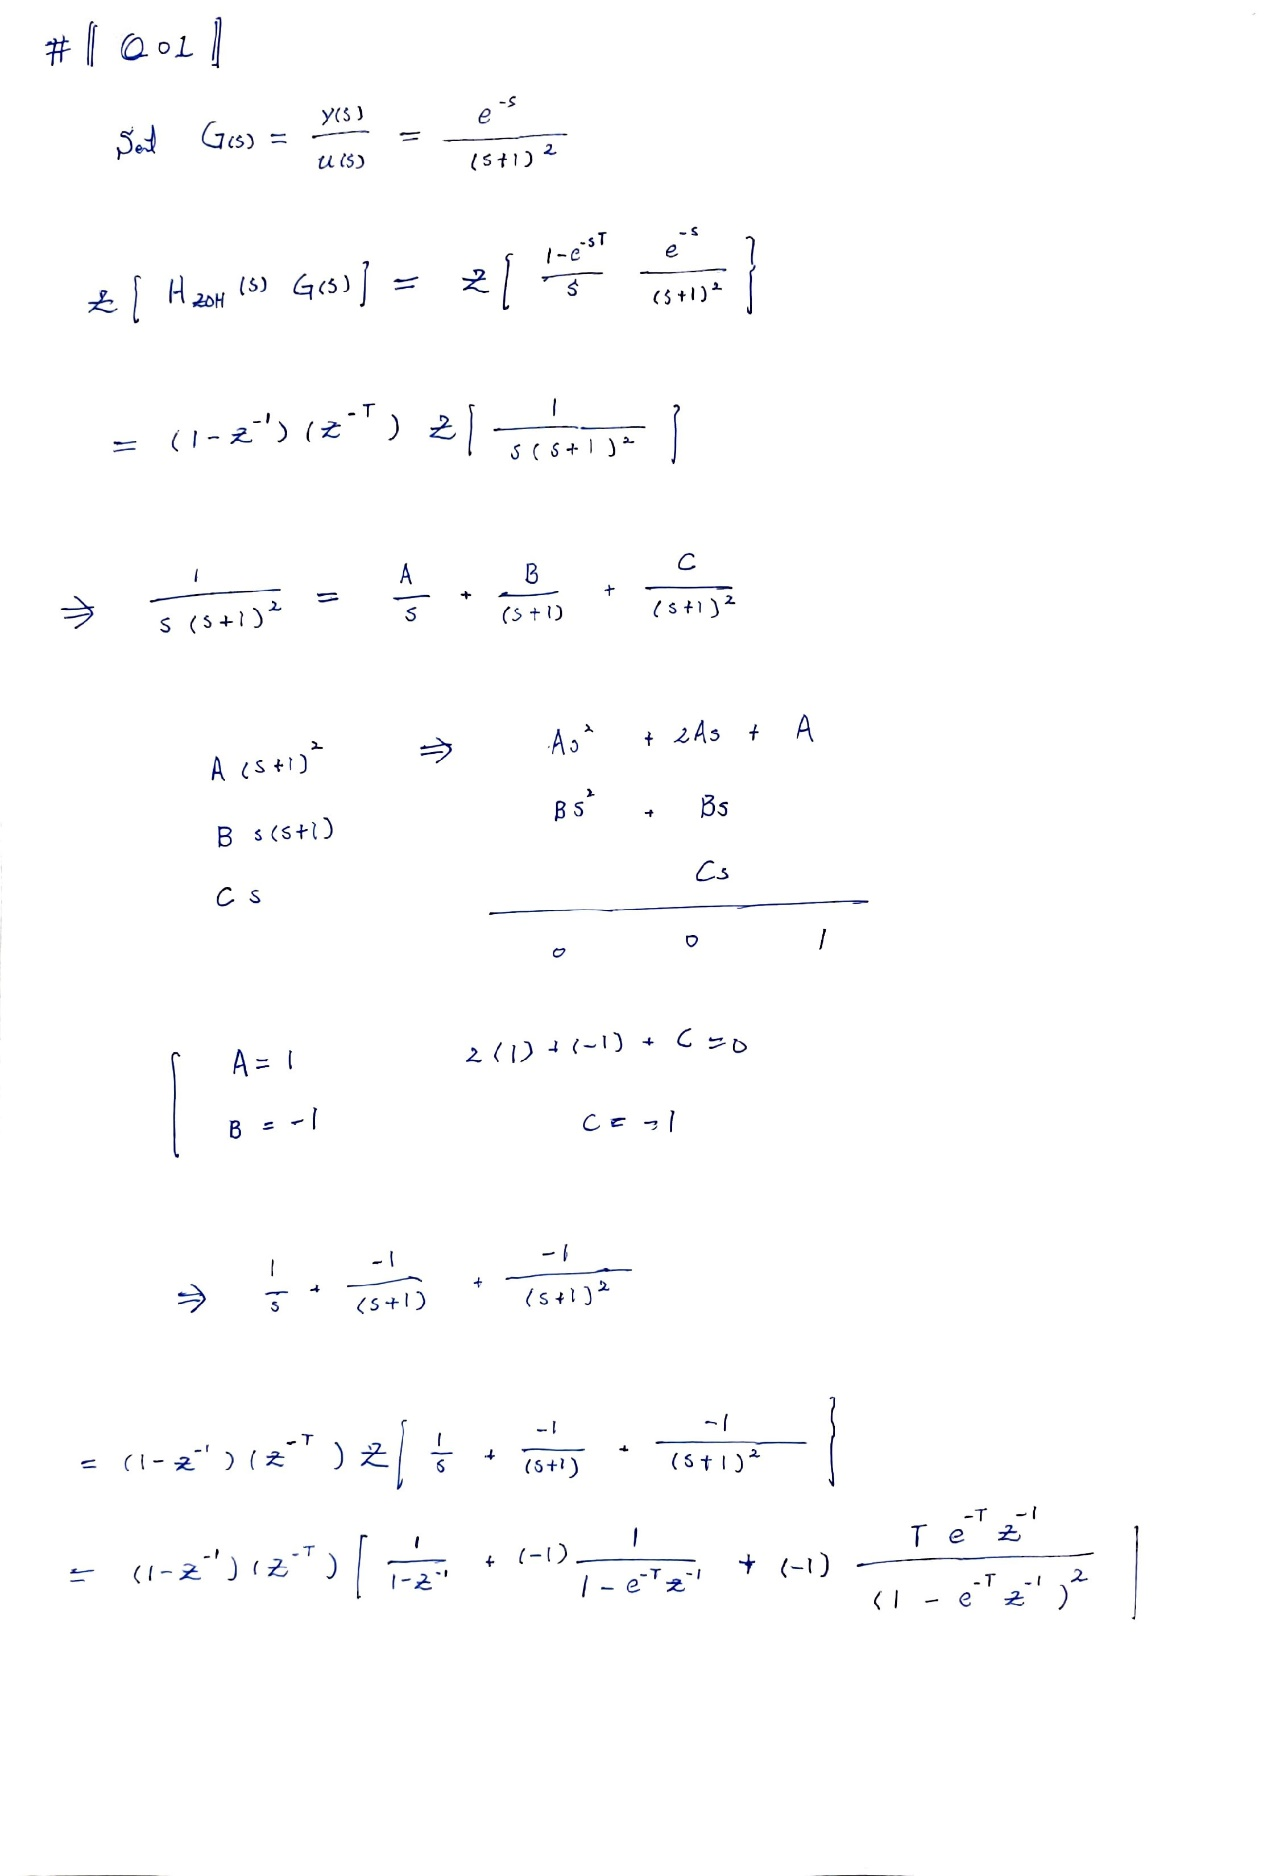 # || Q01 ||
Sol G(s) = Y(s) / U(s) = e^-s / (s+1)^2
Z[ H_ZOH (s) G(s) ] = Z[ 1-e^-sT / s e^-s / (s+1)^2 }
= (1-z^-1) (z^-T) Z[ 1 / s(s+1)^2 ]
⇒ 1 / s(s+1)^2 = A / s + B / (s+1) + C / (s+1)^2
A (s+1)^2 ⇒ As^2 + 2As + A
B s(s+1) Bs^2 + Bs
C s Cs
0 0 1
A = 1 2(1) + (-1) + C = 0
B = -1 C = -1
⇒ 1 / s + -1 / (s+1) + -1 / (s+1)^2
= (1-z^-1) (z^-T) Z[ 1 / s + -1 / (s+1) + -1 / (s+1)^2 }
= (1-z^-1) (z^-T) [ 1 / 1-z^-1 + (-1) 1 / 1-e^-T z^-1 + (-1) T e^-T z^-1 / (1 - e^-T z^-1)^2 ]